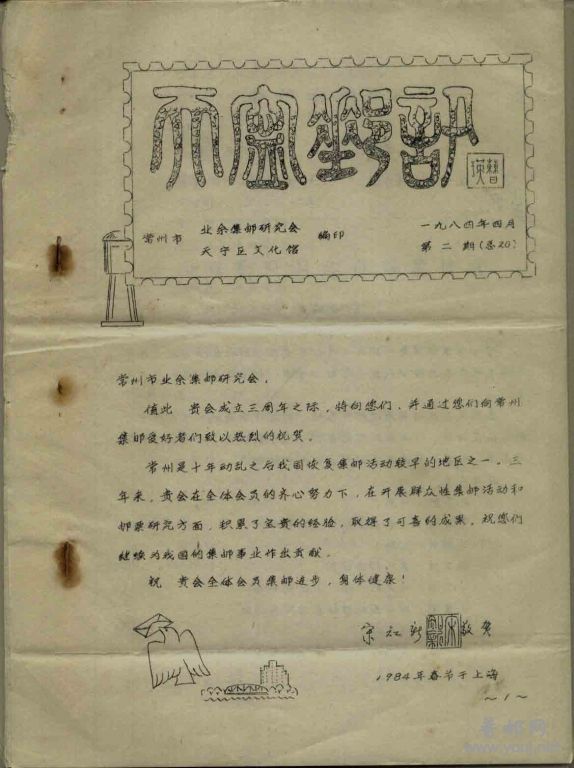 天宁邮讯
常州市 业余集邮研究会 编印
天宁区文化馆
一九八四年四月
第二期(总20)
常州市业余集邮研究会,
值此 贵会成立三周年之际,特向您们、并通过您们向常州
集邮爱好者们致以热烈的祝贺。
常州是十年动乱之后我国恢复集邮活动较早的地区之一。三
年来,贵会在全体会员的齐心努力下,在开展群众性集邮活动和
邮票研究方面,积累了宝贵的经验,取得了可喜的成果。祝您们
继续为我国的集邮事业作出贡献。
祝 贵会全体会员集邮进步,身体健康!
敬贺
1984年春节于上海
~1~